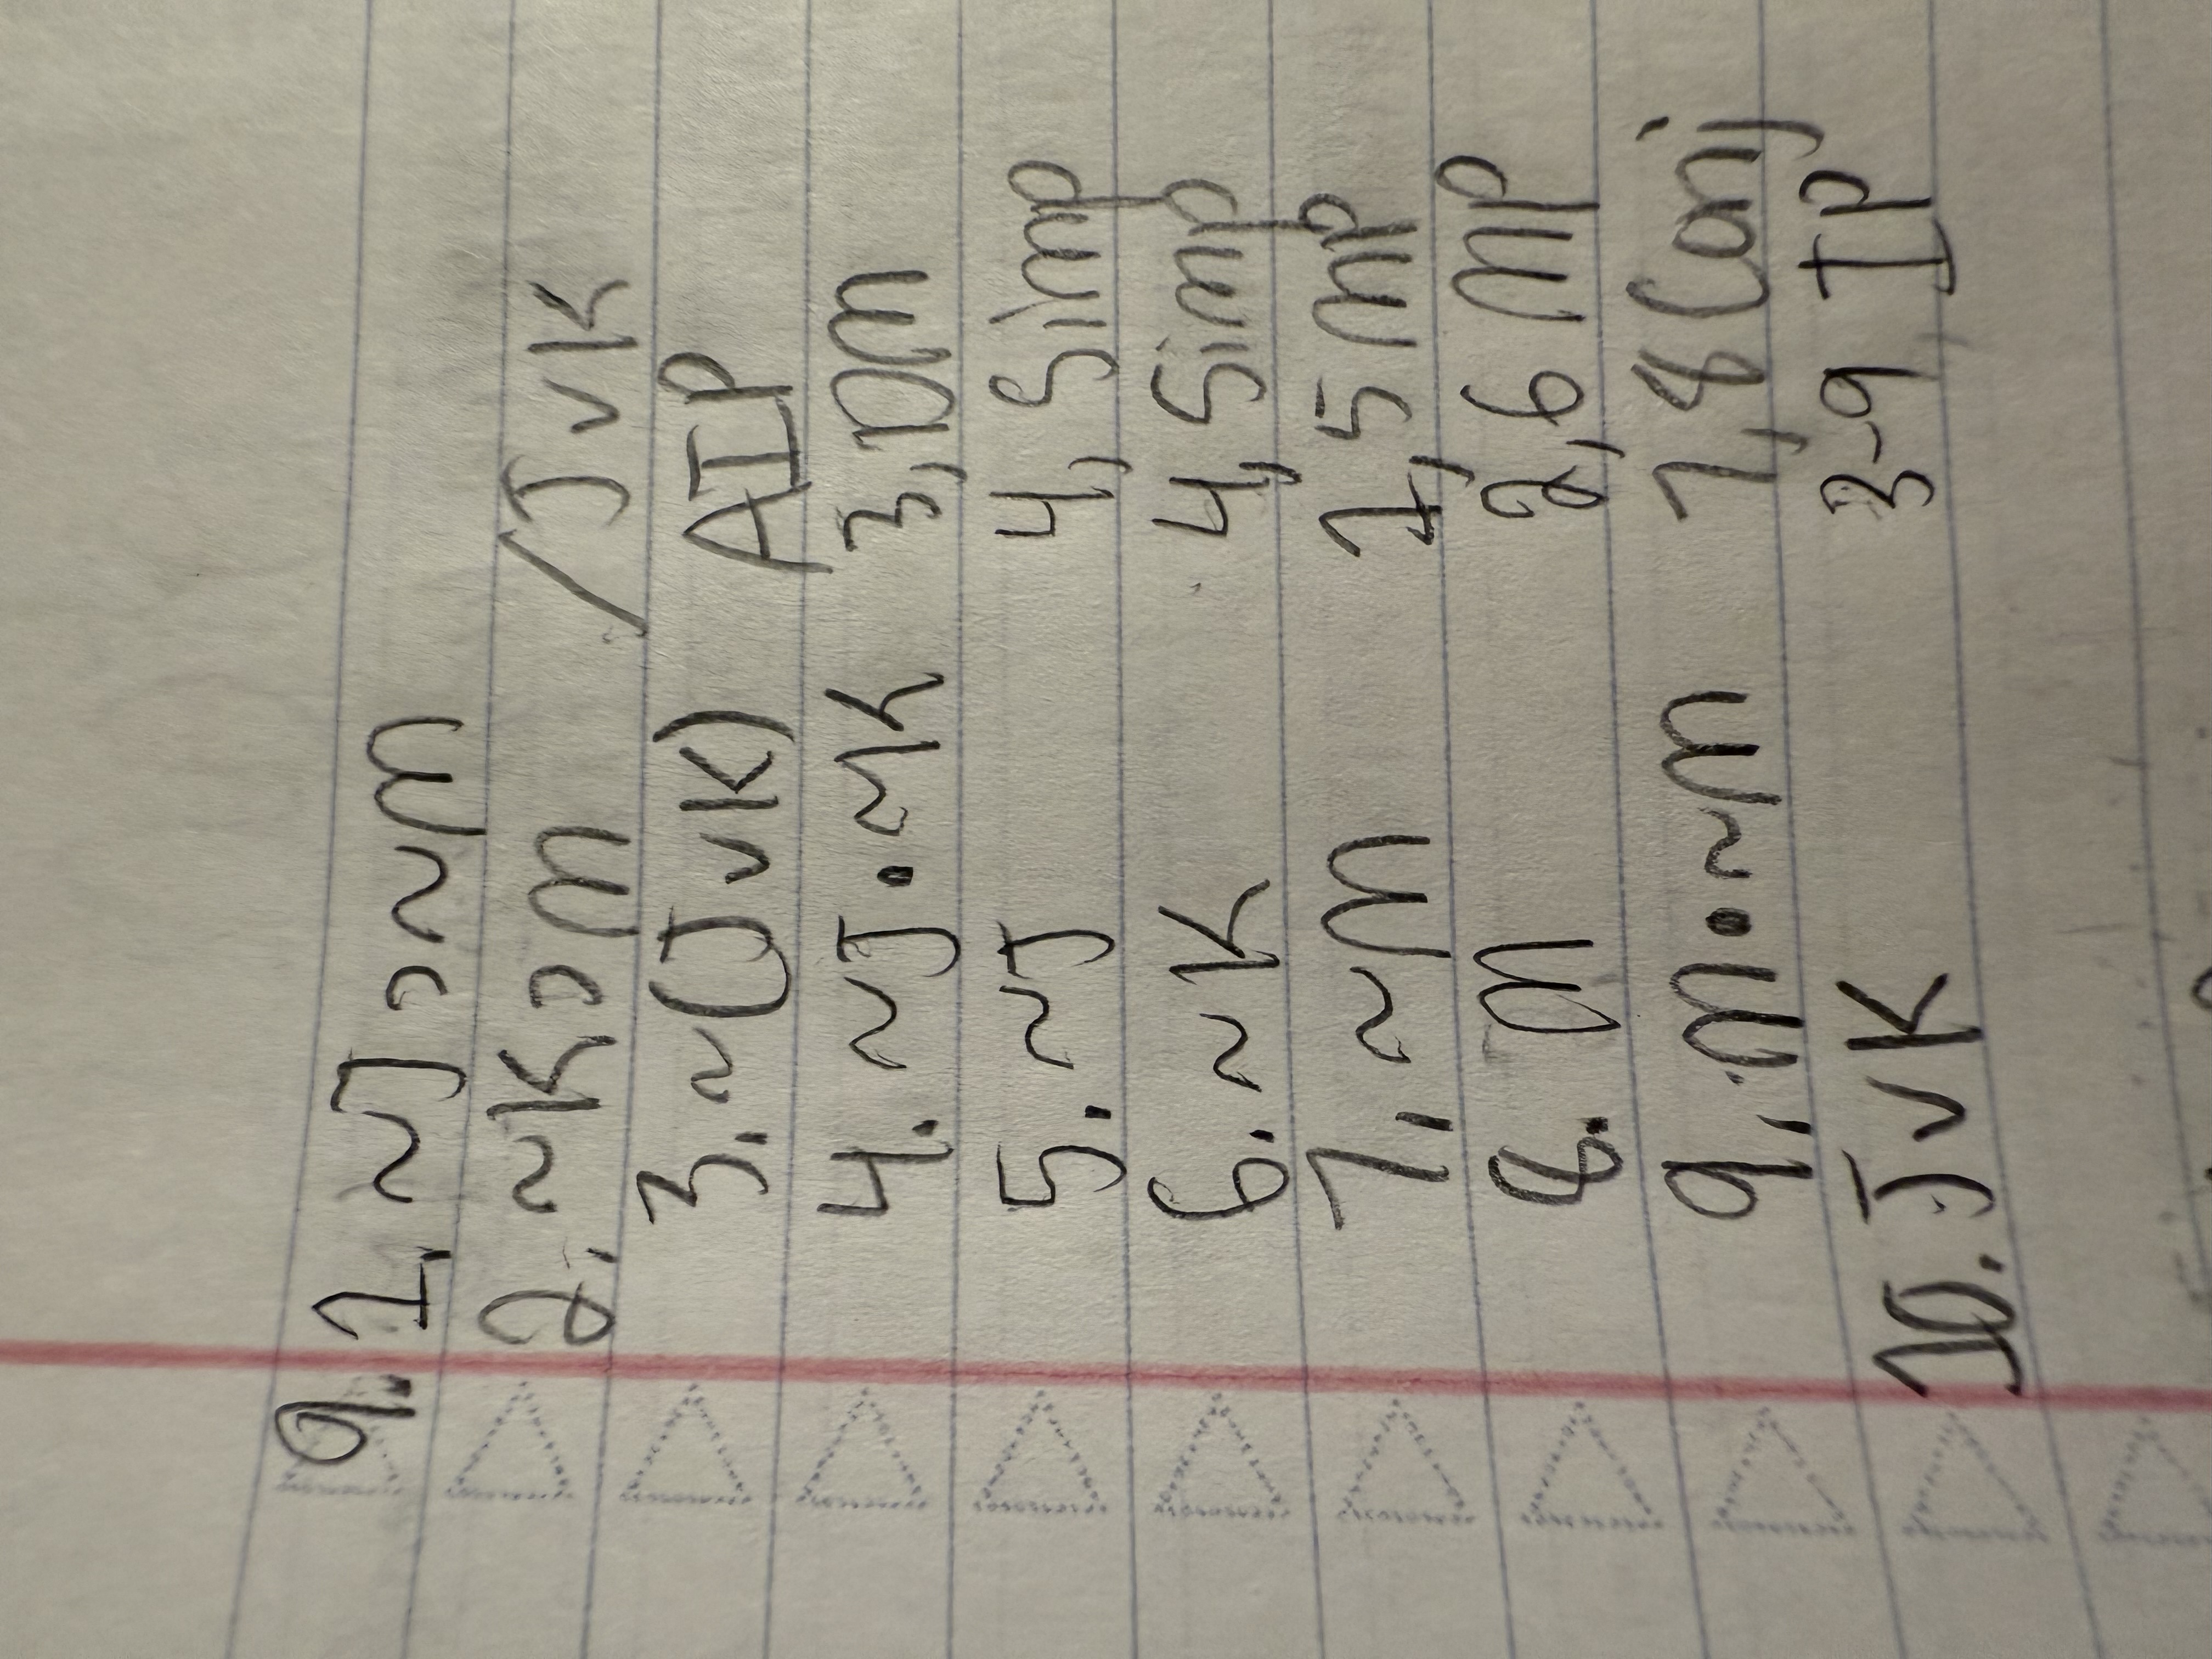 9. 1. ~J ⊃ ~M
2. ~K ⊃ M /J v K
3. ~(J v K) AIP
4. ~J • ~K 3, DM
5. ~J 4, Simp
6. ~K 4, Simp
7. ~M 1, 5 MP
8. M 2, 6 MP
9. M • ~M 7, 8 Conj
10. J v K 3-9 IP